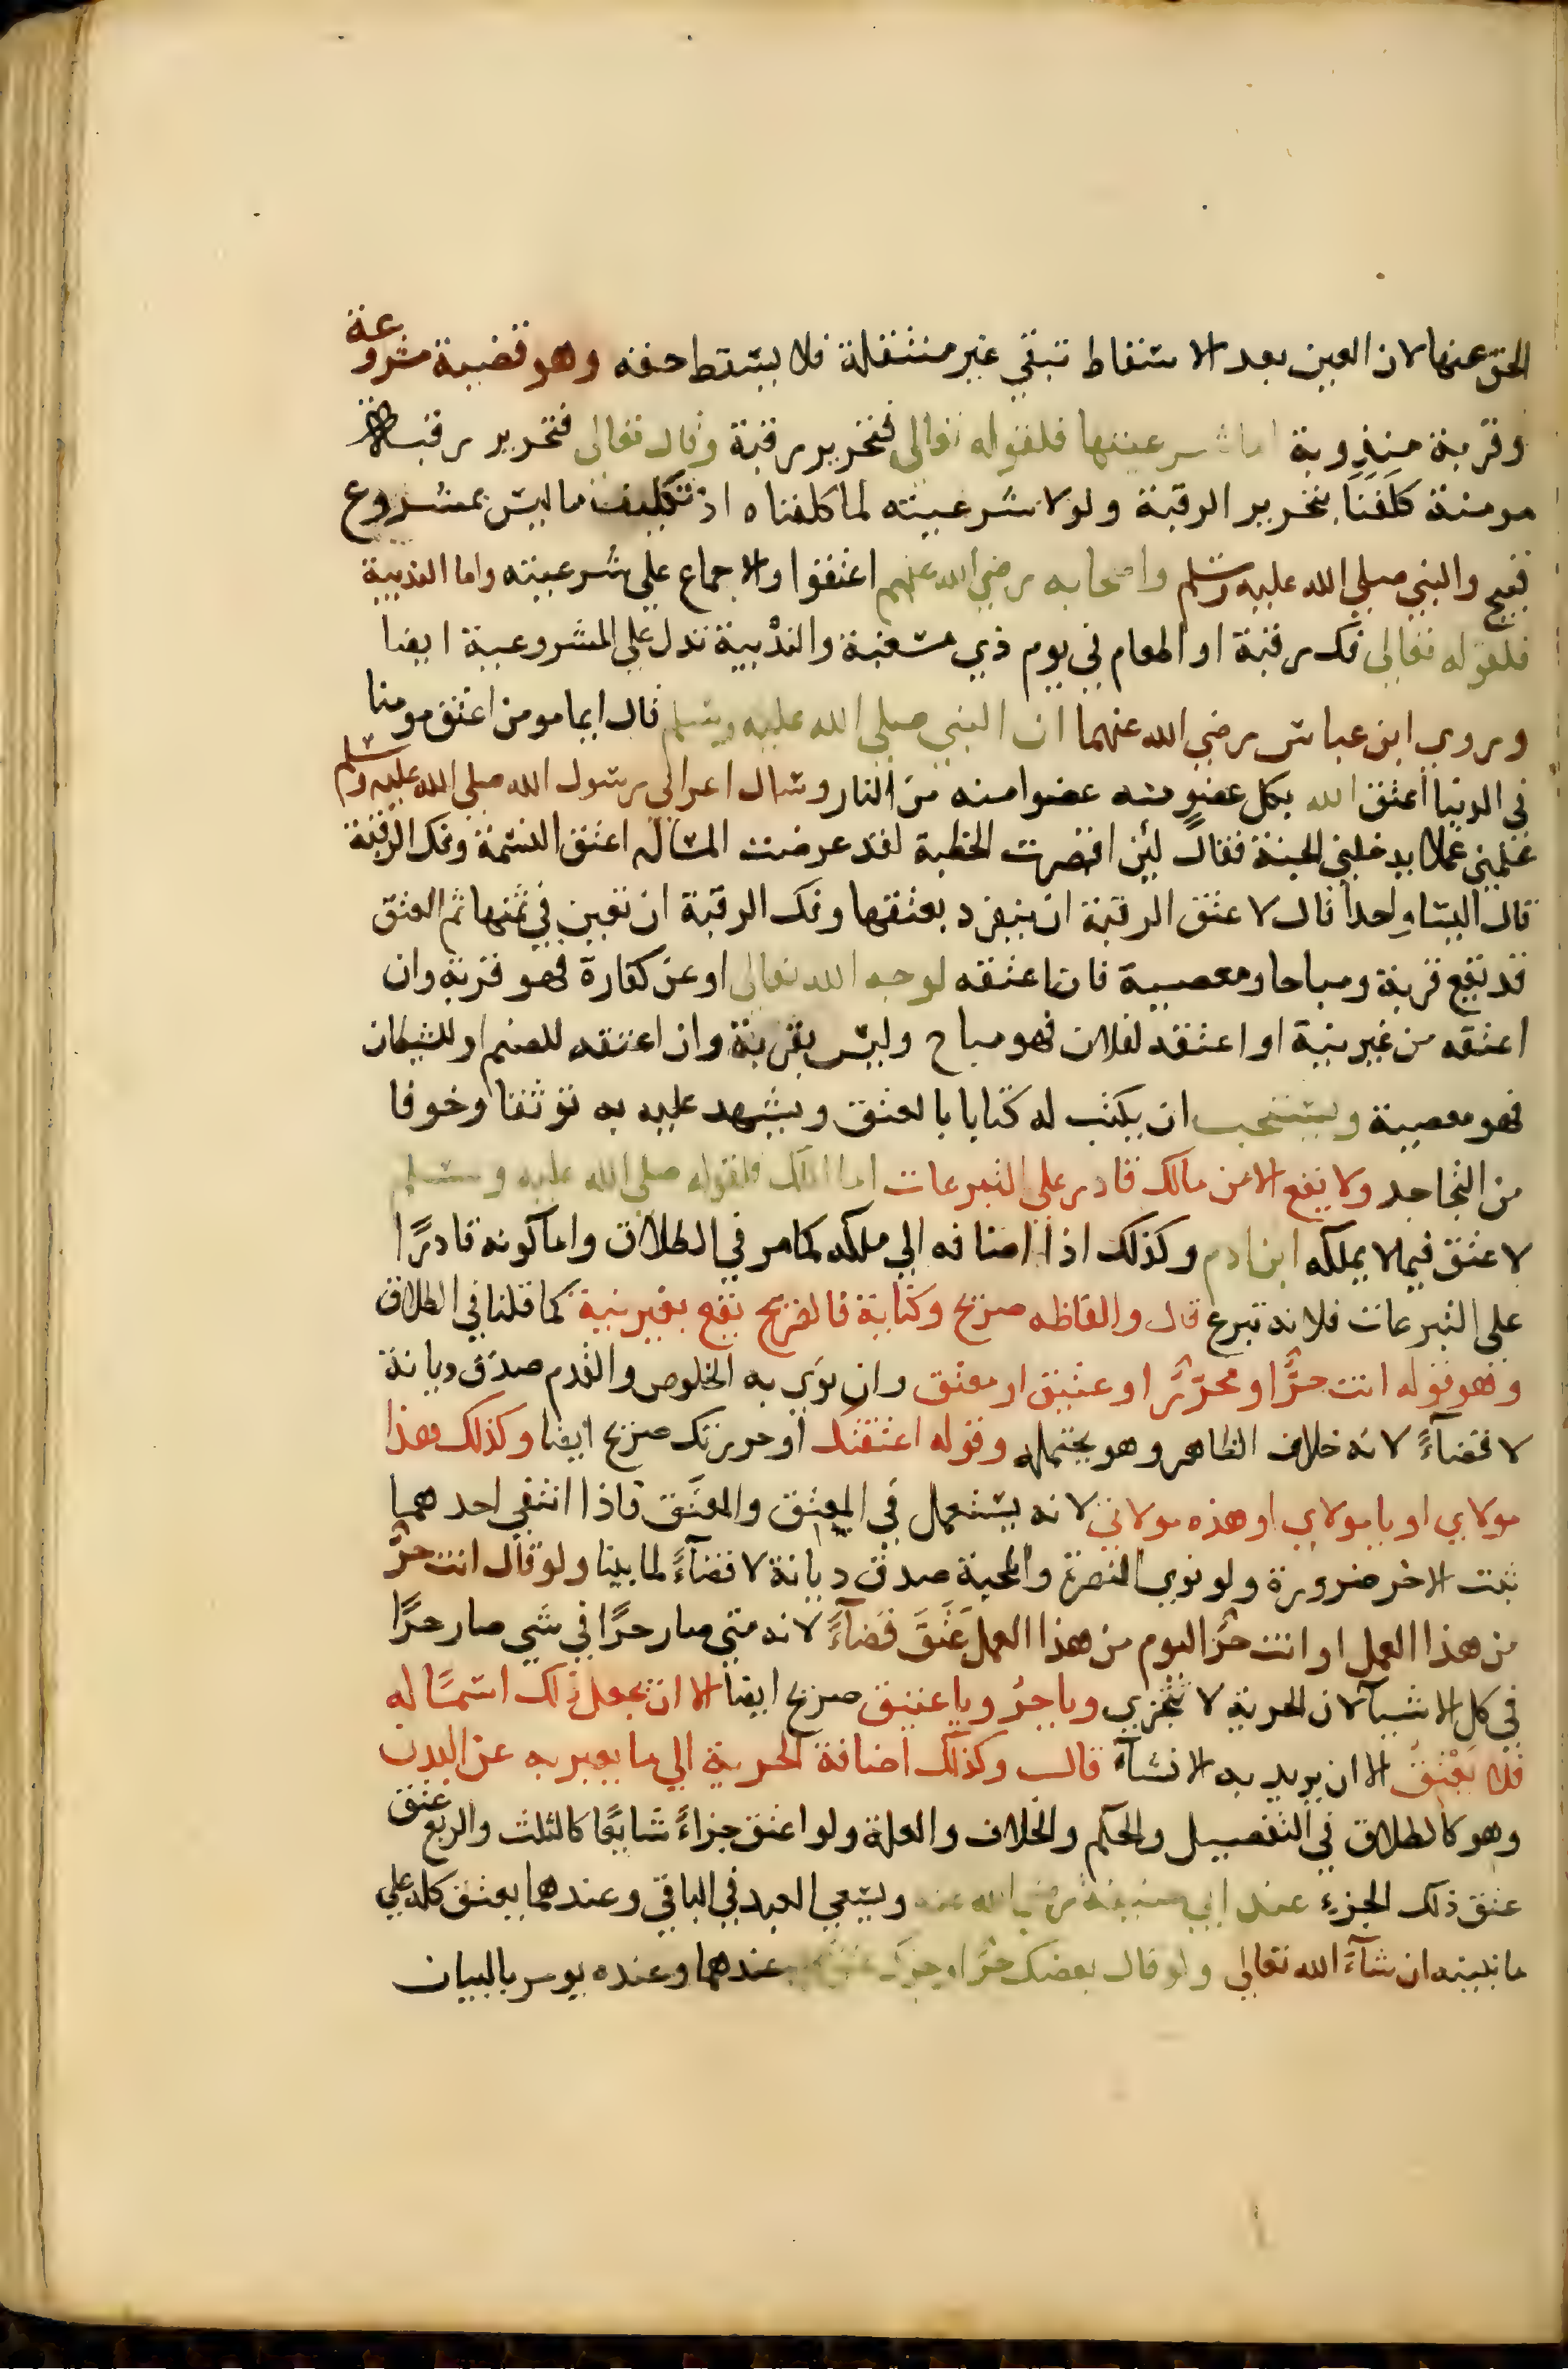 الحق عنها لان العين بعد الاسقاط تبقي غير منتقلة فلا يسقط حقه وهو قضية مشروعة
وقربة مندوبة اما شرعيتها فلقوله تعالى فتحرير رقبة وقال تعالى فتحرير رقبة
مومنة كلفنا بتحرير الرقبة ولولا شرعيته لما كلفناه اذ تكليف ما ليس بمشروع
قبيح والنبي صلي الله عليه وسلم واصحابه رضي الله عنهم اعتقوا والاجماع علي شرعيته واما الندبية
فلقوله تعالى فك رقبة او اطعام في يوم ذي مسغبة والندبية تدل علي المشروعية ايضا
وروي ابن عباس رضي الله عنهما ان النبي صلي الله عليه وسلم قال ايما مومن اعتق مومنا
في الدنيا اعتق الله بكل عضو منه عضوا منه من النار وسال اعرابي رسول الله صلي الله عليه وسلم
علمني عملا يدخلني الجنة فقال لئن اقصرت الخطبة لقد عرضت المسالة اعتق النسمة وفك الرقبة
قال اليسا واحدا قال لا عتق الرقبة ان ينفرد بعتقها وفك الرقبة ان تعين في ثمنها ثم العتق
قد يقع قربة ومباحا ومعصية فان اعتقه لوجه الله تعالى او عن كفارة فهو قربة وان
اعتقه من غير نية او اعتقه لفلان فهو مباح وليس بقربة وان اعتقه للصنم او للشيطان
فهو معصية ويستحب ان يكتب له كتابا بالعتق ويشهد عليه به توثقا وخوفا
من التجاحد ولا يقع الا من مالك قادر علي التبرعات اما الملك فلقوله صلي الله عليه وسلم
لا عتق فيما لا يملكه ابن ادم وكذلك اذا اضافه الي ملكه كما مر في الطلاق واما كونه قادرًا
علي التبرعات فلانه تبرع قال والفاظه صريح وكناية فالصريح يقع بغير نية كما قلنا في الطلاق
وهو قوله انت حرٌّ او محرّرٌ او عتيق او معتق وان نوي به الخلوص والقدم صدق ديانة
لا قضآءً لانه خلاف الظاهر وهو يحتمله وقوله اعتقتك او حررتك صريح ايضا وكذلك هذا
مولاي او يا مولاي او هذه مولاتي لانه يستعمل في المعتِق والمعتَق فاذا انتفي احدهما
ثبت الاخر ضرورة ولو نوي النصرة والمحبة صدق ديانة لا قضآءً لما بينا ولو قال انت حرٌّ
من هذا العمل او انت حرٌّ اليوم من هذا العمل عَتَقَ قضآءً لانه متي صار حرًّا في شي صار حرًّا
في كل الاشيآ لان الحرية لا تتجزي ويا حرُّ ويا عتيق صريح ايضا الا ان يجعل ذلك اسمًا له
فلا يعتق الا ان يريد به الانشآء قال وكذلك اضافة الحرية الي ما يعبر به عن البدن
وهو كالطلاق في التفصيل والحكم والخلاف والعلة ولو اعتق جزاءً شايعًا كالثلث والربع عتق
عتق ذلك الجزء عند ابي حنيفة رضي الله عنه ويسعي العبد في الباقي وعندهما يعتق كله علي
ما نبينه ان شآء الله تعالى ولو قال بعضك حرٌّ او جزك عتق عندهما وعنده يومر بالبيان